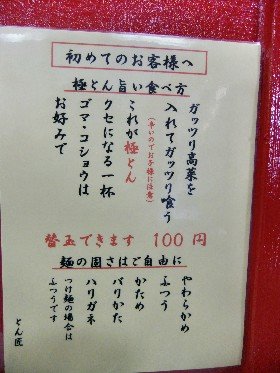 初めてのお客様へ
極とん旨い食べ方
ガッツリ高菜を
入れてガッツリ喰う
(辛いのでお子様に注意)
これが極とん
クセになる一杯
ゴマ・コショウは
お好みで
替玉できます 100円
麺の固さはご自由に
やわらかめ
ふつう
かため
バリかた
ハリガネ
つけ麺の場合は
ふつうです
とん匠